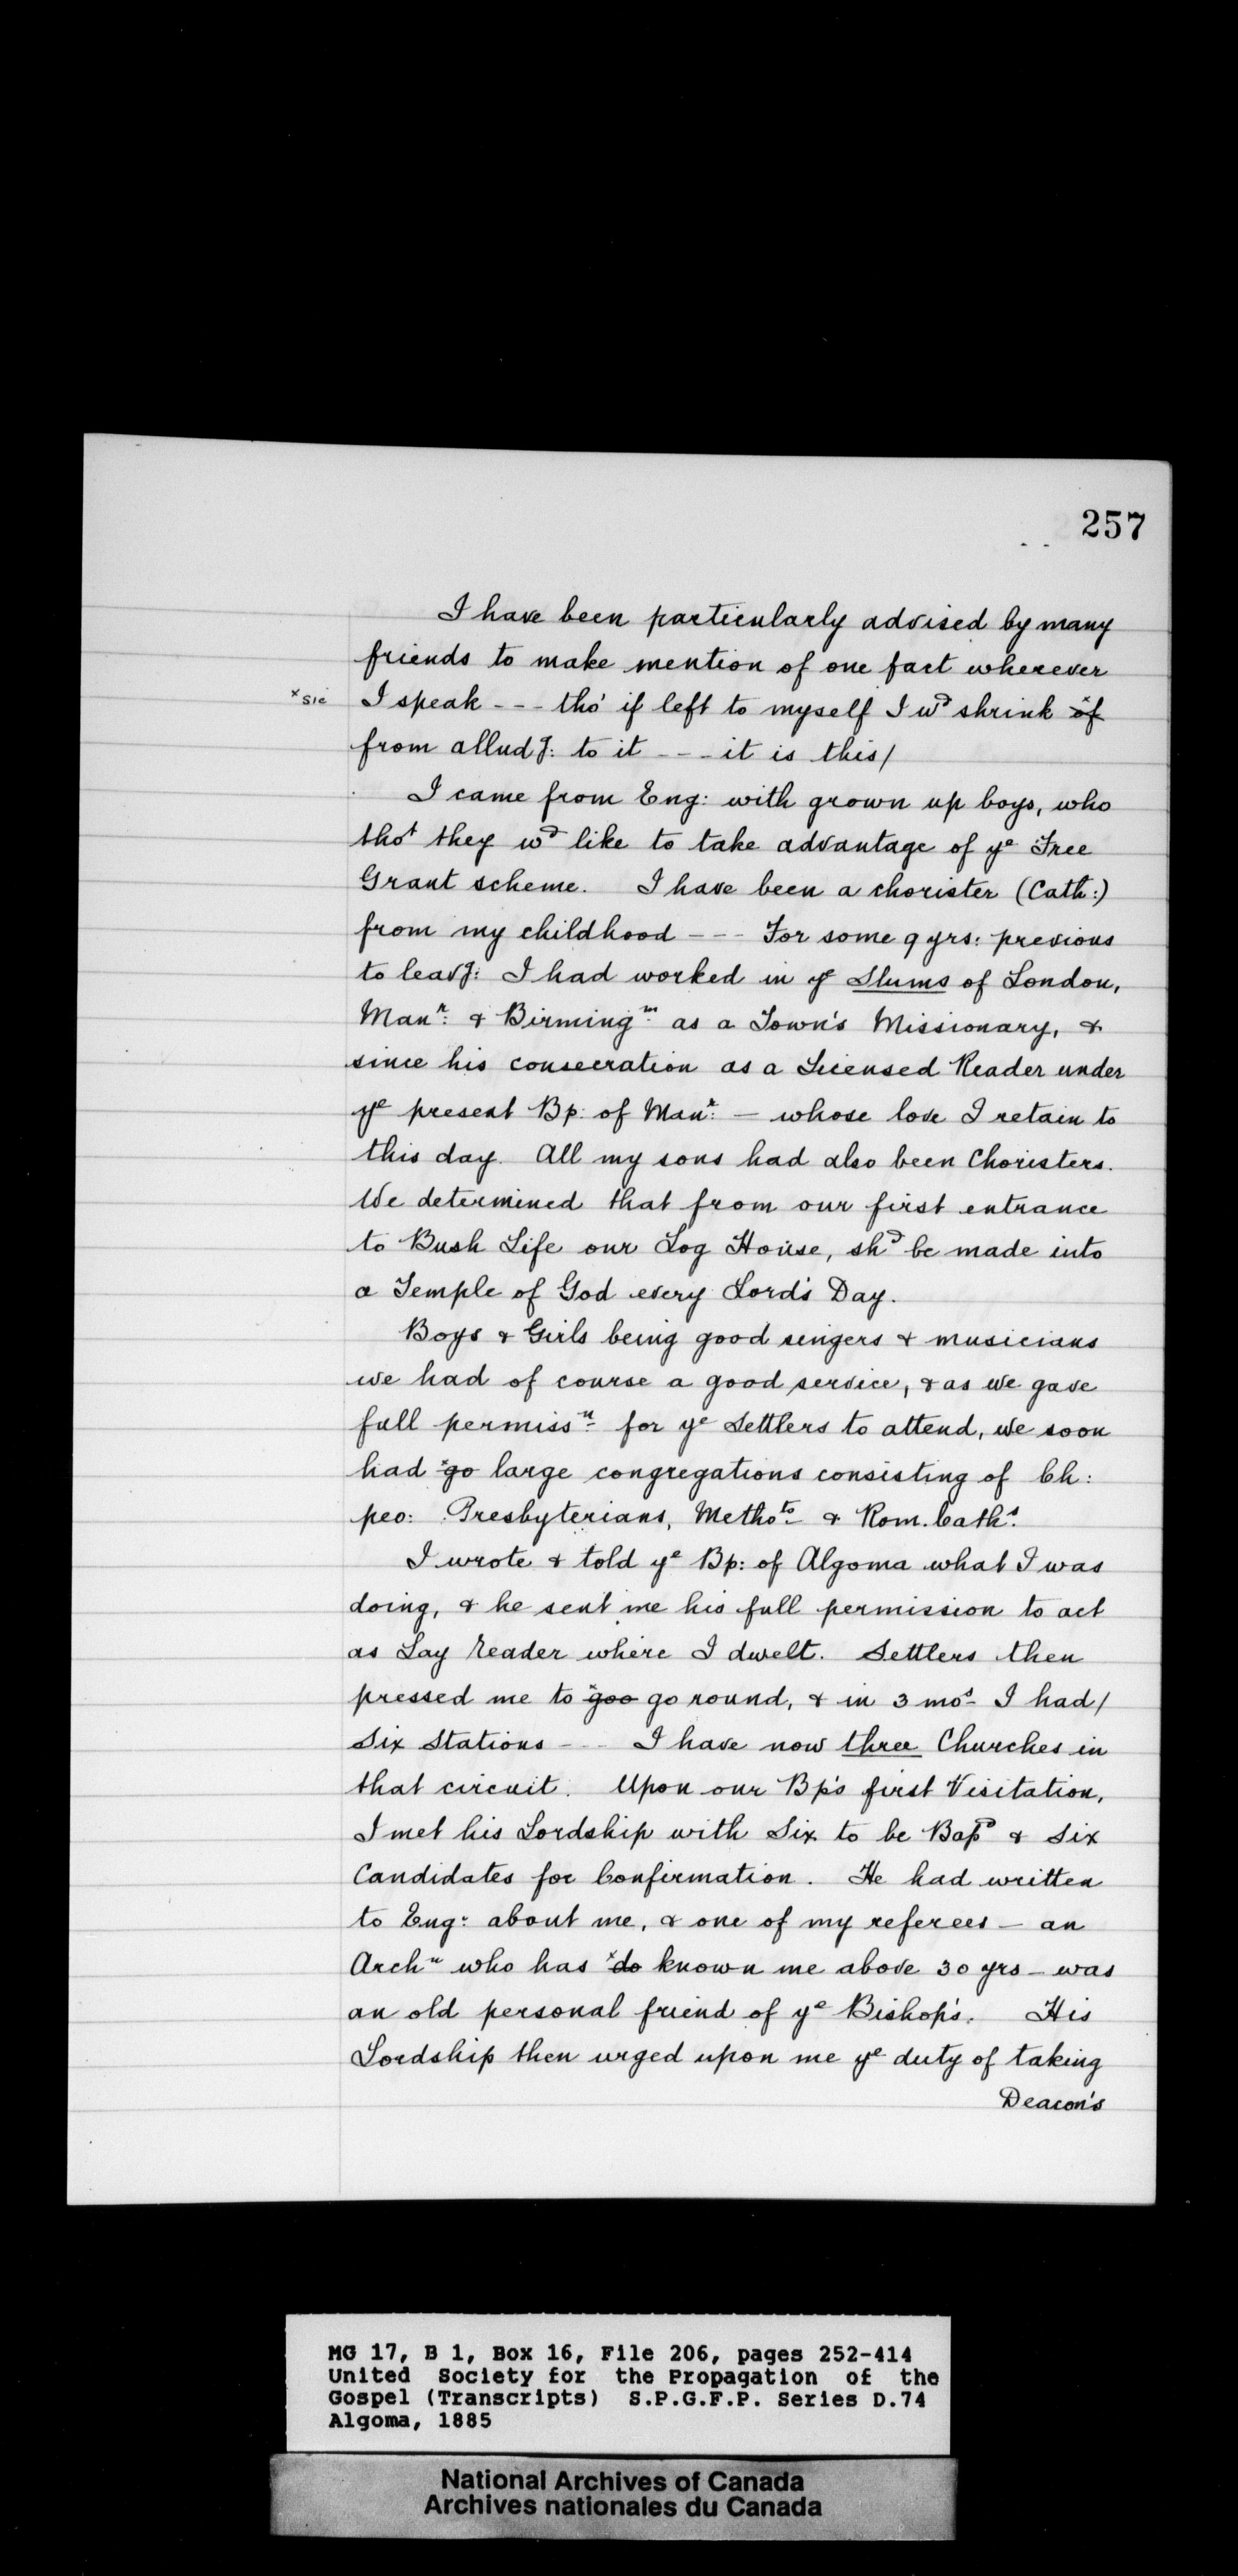 257
I have been particularly advised by many
friends to make mention of one fact wherever
x sic I speak --- tho' if left to myself I wd shrink xof
from alludg: to it --- it is this/
I came from Eng: with grown up boys, who
thot they wd like to take advantage of ye Free
Grant scheme. I have been a chorister (Cath:)
from my childhood --- For some 9 yrs: previous
to leavg: I had worked in ye Slums of London,
Manr: & Birmingm: as a Town's Missionary, &
since his consecration as a Licensed Reader under
ye present Bp: of Manr: — whose love I retain to
this day. All my sons had also been Choristers.
We determined that from our first entrance
to Bush Life our Log House, shd be made into
a Temple of God every Lord's Day.
Boys & Girls being good singers & musicians
we had of course a good service, & as we gave
full permissn: for ye Settlers to attend, we soon
had xgo large congregations consisting of Ch:
peo: Presbyterians, Methots & Rom. Caths.
I wrote & told ye Bp: of Algoma what I was
doing, & he sent me his full permission to act
as Lay reader where I dwelt. Settlers then
pressed me to xgoo go round, & in 3 mos I had/
Six Stations --- I have now three Churches in
that circuit. Upon our Bp's first Visitation,
I met his Lordship with Six to be Bapd & Six
Candidates for Confirmation. He had written
to Eng: about me, & one of my referees — an
Archn who has xdo known me above 30 yrs — was
an old personal friend of ye Bishop's. His
Lordship then urged upon me ye duty of taking
Deacon's
MG 17, B 1, Box 16, File 206, pages 252-414
United Society for the Propagation of the
Gospel (Transcripts) S.P.G.F.P. Series D.74
Algoma, 1885
National Archives of Canada
Archives nationales du Canada